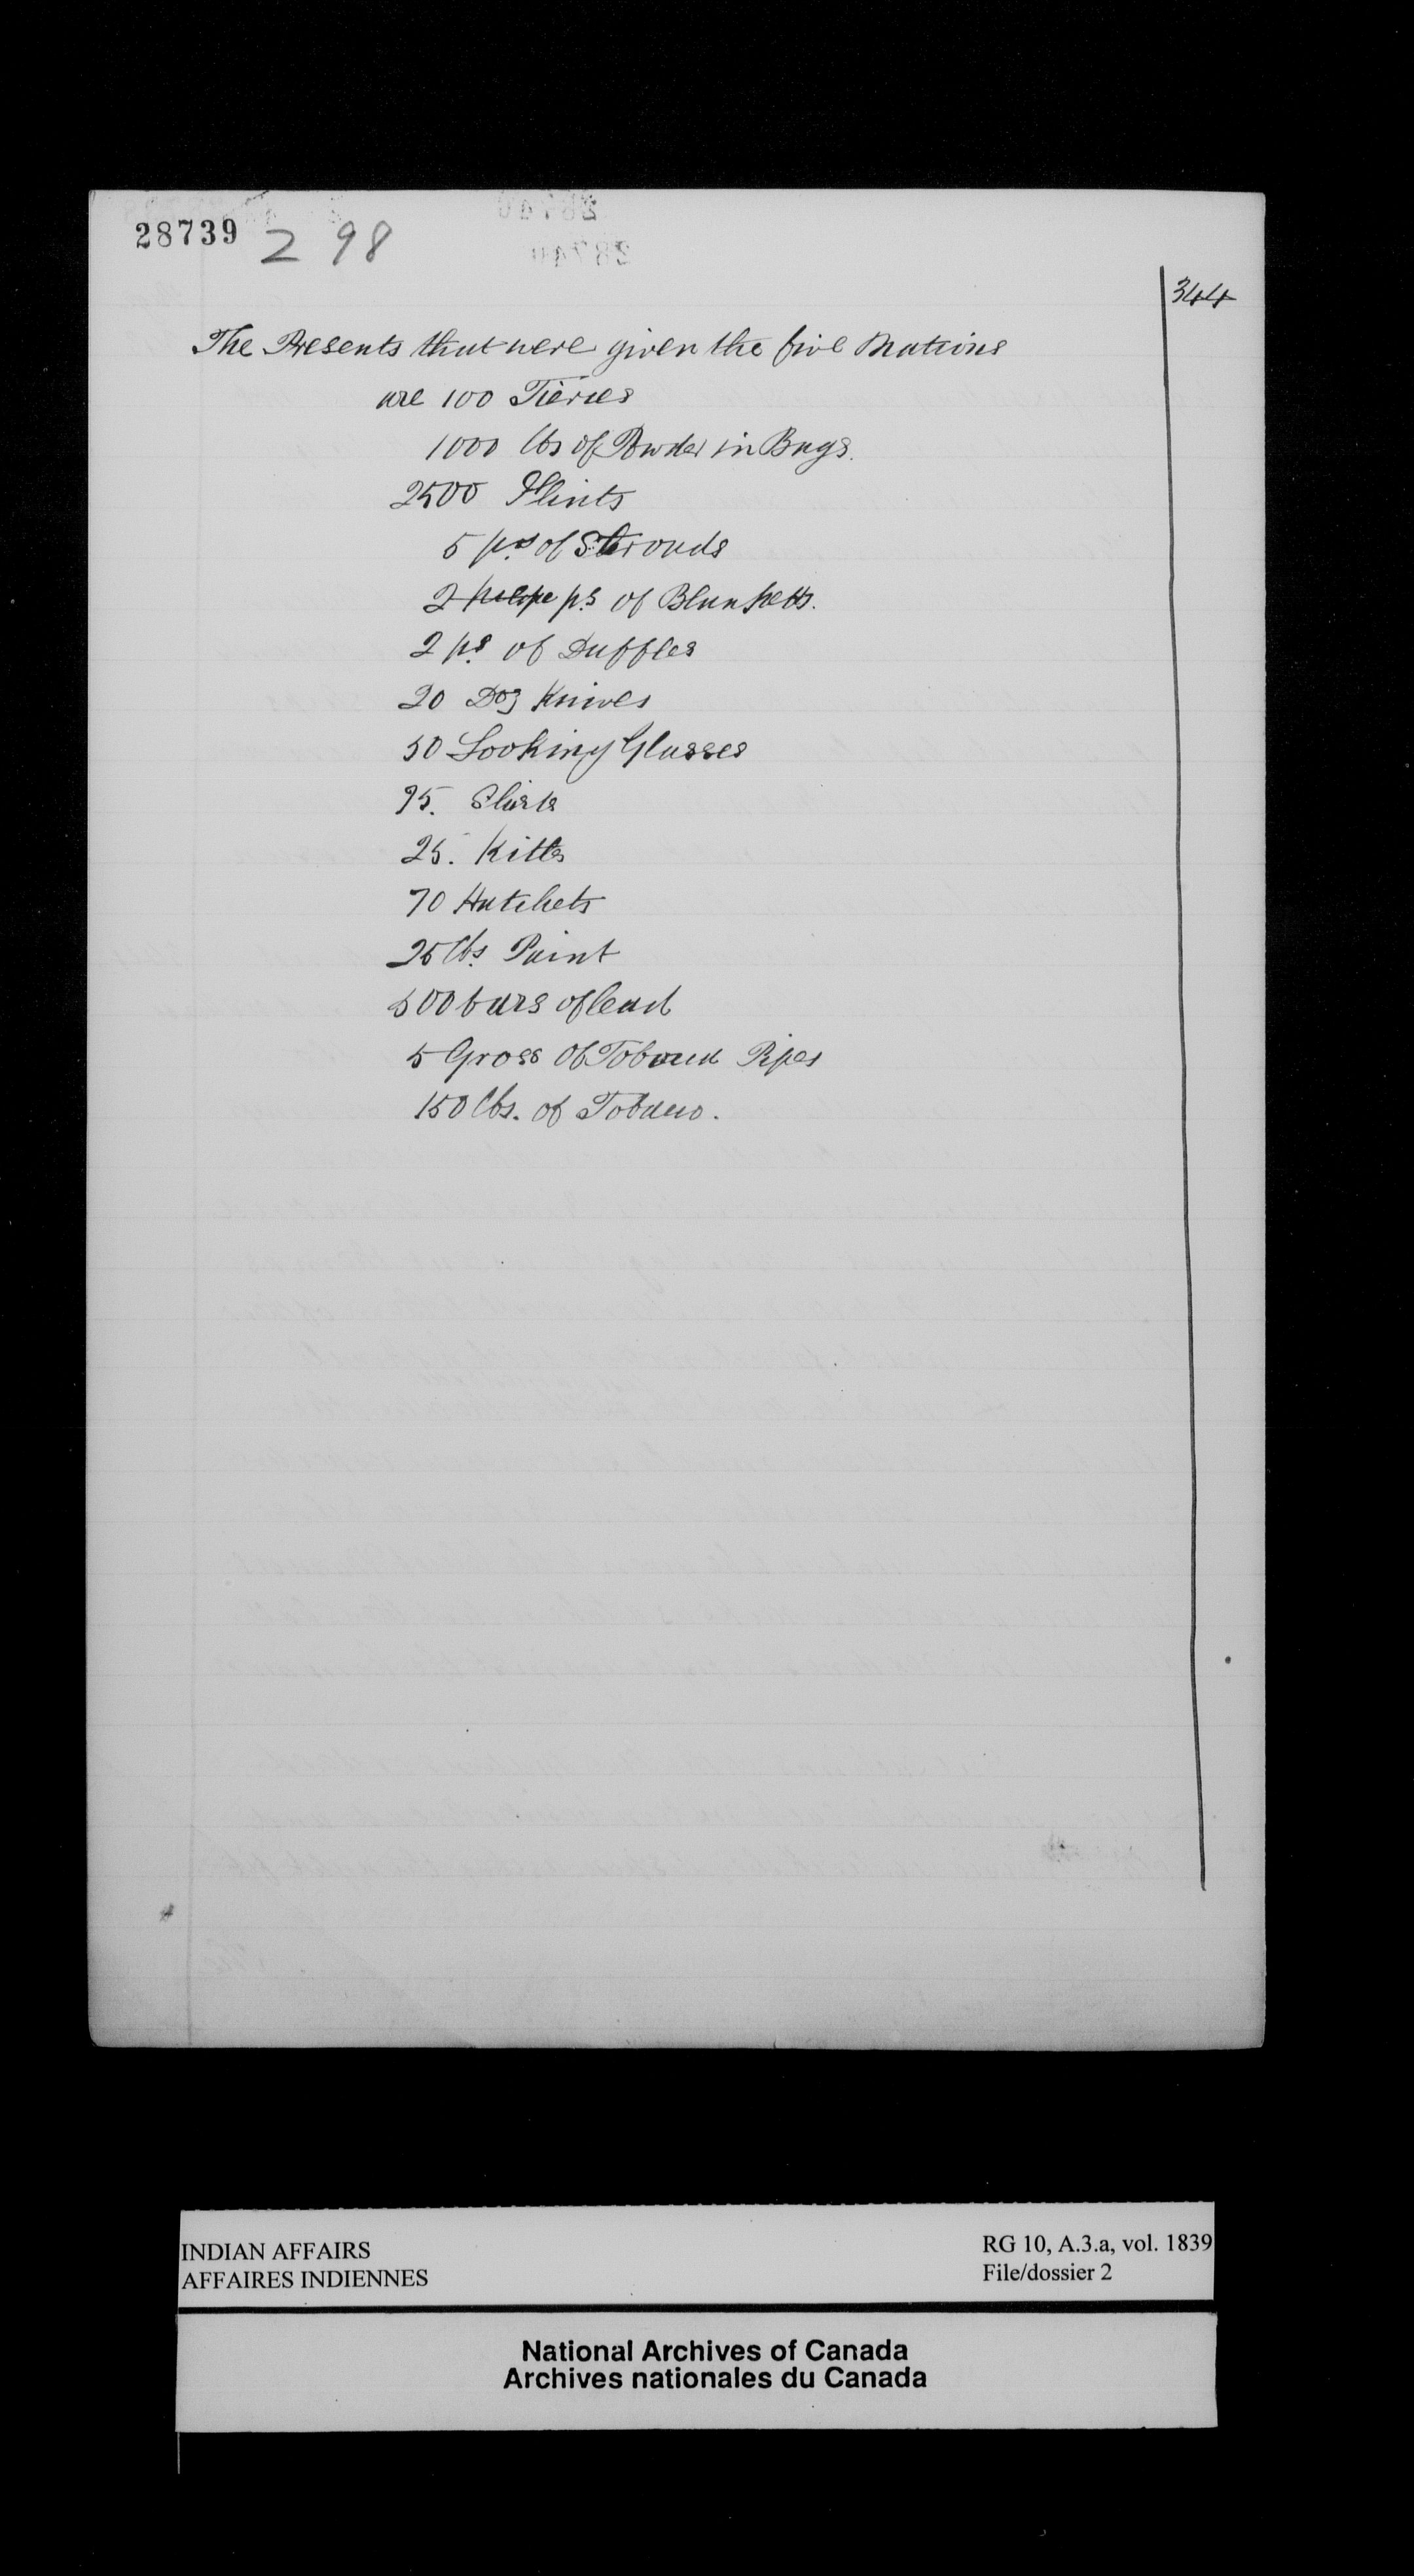 28739 298
344
The Presents that were given the five Nations
are 100 Tierces
1000 lbs of Powder in Bags.
2500 Flints
5 ps of Strouds
2 ps of Blanketts.
2 ps of Duffles
20 Doz Knives
50 Looking Glasses
25. Kittls
70 Hatchets
25 lbs. Paint
500 bars of lead
5 Gross of Tobacco Pipes
150 lbs. of Tobacco.
INDIAN AFFAIRS
AFFAIRES INDIENNES
RG 10, A.3.a, vol. 1839
File/dossier 2
National Archives of Canada
Archives nationales du Canada